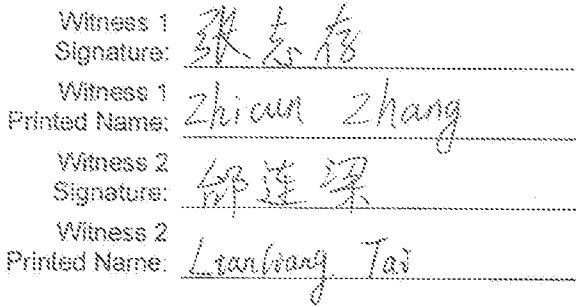 Witness 1
Signature: 张志存
Witness 1
Printed Name: Zhicun Zhang
Witness 2
Signature: 邰连梁
Witness 2
Printed Name: Lianliang Tai